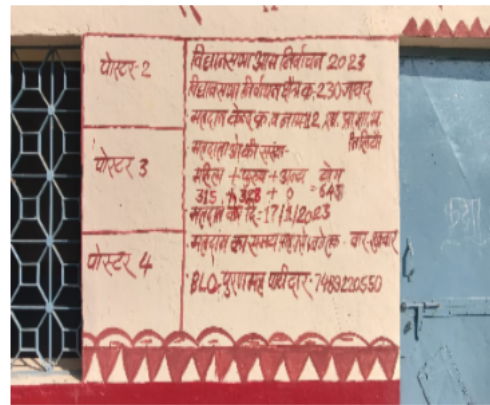 पोस्टर-2
पोस्टर 3
पोस्टर 4
विधानसभा आम निर्वाचन 2023
विधानसभा निर्वाचन क्षेत्र क्र. 230 जावद
मतदान केन्द्र क्र. व नाम 12
मतदाताओं की संख्या
महिला + पुरुष + अन्य योग
315 + + 0 =
मतदान की दि: 17/11/2023
मतदान का समय वार-शुक्रवार
BLO. पुरणमल पाटीदार: 7489220550